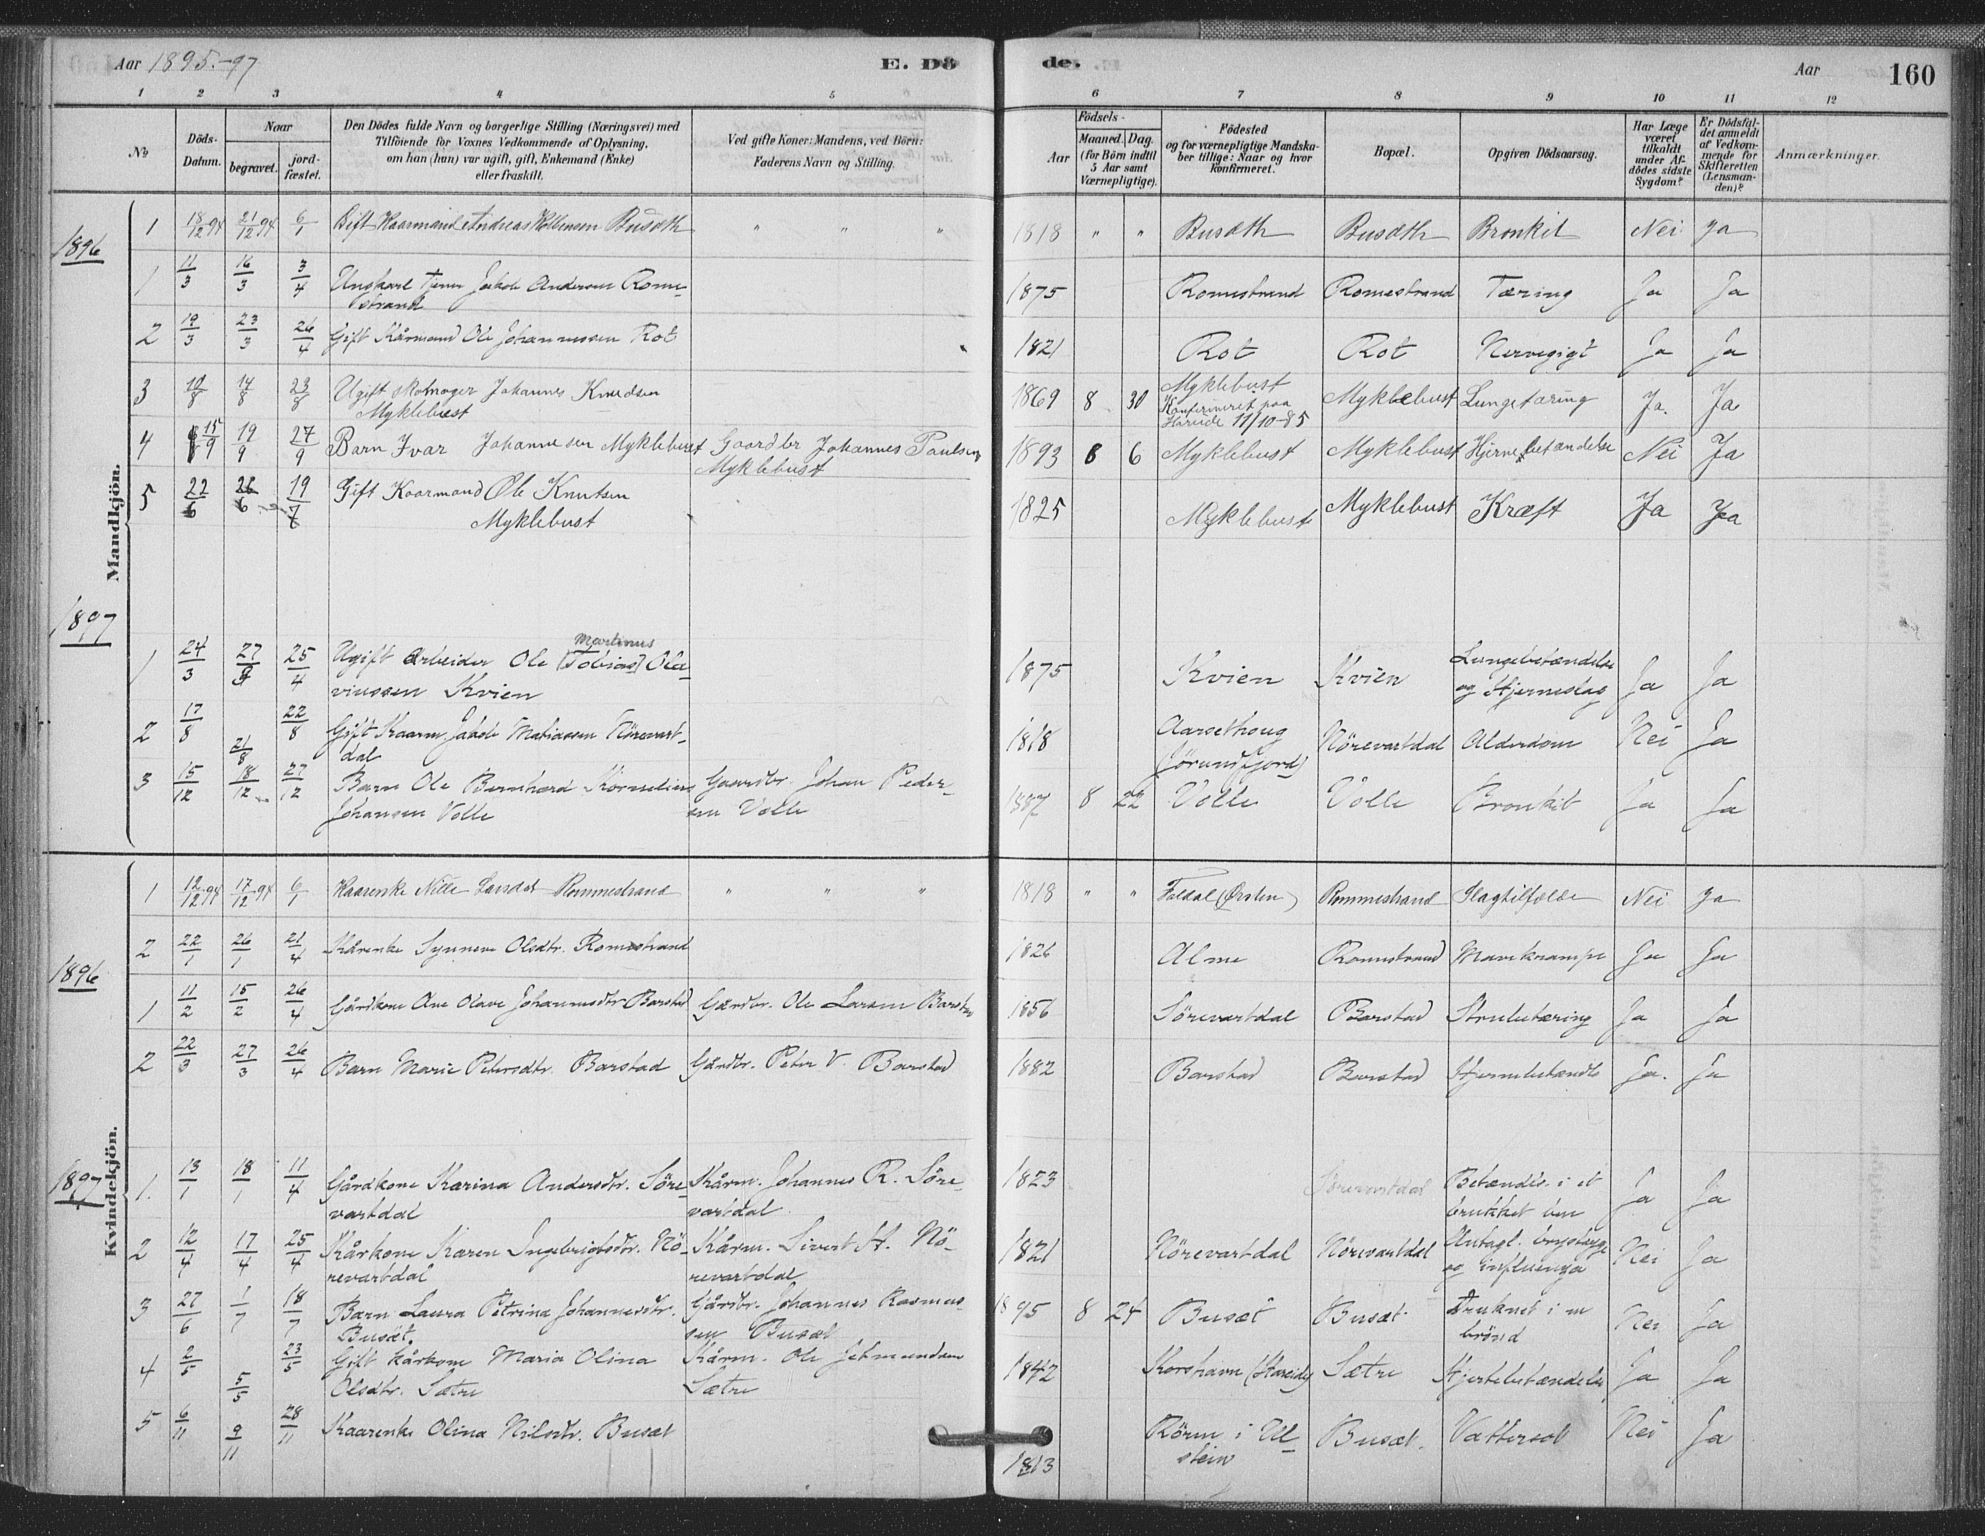 Aar 1895.-97 E. Dö de. Aar 160
1 2 3 4 5 6 7 8 9 10 11 12
No Döds-Datum. Naar begravet. jordfæstet. Den Dödes fulde Navn og borgerlige Stilling (Næringsvei) med Tilföiende for Voxnes Vedkommende af Oplysning, om han (hun) var ugift, gift, Enkemand (Enke) eller fraskilt. Ved gifte Koner: Mandens, ved Börn: Faderens Navn og Stilling. Födsels- Aar Maaned. Dag. (for Börn indtil 5 Aar samt Værnepligtige). Födested og for værnepligtige Mandskaber tillige: Naar og hvor konfirmeret. Bopæl. Opgiven Dödsaarsag. Har Læge været tilkaldt under Afdödes sidste Sygdom? Er Dödsfaldet anmeldt af Vedkommende for Skifteretten (Lensmanden)? Anmærkninger.
Mandkjön.
1 18/12 94 21/12 94 6/1 Gift Kaarmand Andreas Busæth " " " 1818 " " Busæth Busæth Bronkit Nei Ja
1896
1 11/3 16/3 3/4 Ungkarl Jakob Andersen Rome-
strand 1875 Romestrand Romestrand Tæring Ja Ja
2 19/3 23/3 26/4 Gift Kårmand Ole Johannessen Rot 1821 Rot Rot Nervegigt Ja Ja
3 10/8 14/8 23/8 Ugift skomager Johannes Knudsen
Myklebust 1869 8 30 Myklebust
Konfirmeret paa
Hareide 11/10-85 Myklebust Lungetæring Ja. Ja
4 15/9 19/9 27/9 Barn Ivar Johannesen Myklebust Gaardbr Johannes Paulsen
Myklebust 1893 8 6 Myklebust Myklebust Hjernebetændelse Nei Ja
5 22/6 26/6 19/7 Gift Kaarmand Ole Knutsen
Myklebust 1825 Myklebust Myklebust Kræft Ja Ja
1897
1 24/3 27/3 25/4 Ugift arbeider Ole Martinus [Tobias] Ola-
viussen Kvien 1875 Kvien Kvien Lungebetændelse
og Hjerneslag Ja Ja
2 17/8 21/8 22/8 Gift Kaarm. Jakob Matiassen Nörevart-
dal 1818 Aarsethoug
(Jörundfjord) Nörevartdal Alderdom Nei Ja
3 15/12 18/12 27/12 Barn Ole Bernhard Kornelius
Johansen Volle Gaardbr. Johan Peder-
sen Volle 1887 8 22 Volle Volle Bronkit Ja Ja
Kvindekjön.
1 12/12 94 17/12 94 6/1 Kaarenke Rommestrand " " " 1818 " " (Örsten) Rommestrand Slagtilfælde Nei Ja
2 22/1 26/1 21/4 Kårenke Synneve Olsdtr. Romestrand 1826 Alme Romestrand Mavekrampe Ja Ja
1896
1 11/2 15/2 26/4 Gårdkone Ane Olave Johannesdtr Barstad Gårdbr. Ole Larsen Barstad 1856 Sörevartdal Barstad Strubetæring Ja Ja
2 22/3 27/3 26/4 Barn Marie Petersdtr. Barstad Gårdbr. Peter V. Barstad 1882 Barstad Barstad Hjernebetændls Ja. Ja
1897
1. 13/1 18/1 11/4 Gårdkone Karina Andersdtr. Söre-
vartdal Kårm. Johannes R. Söre-
vartdal 1823 Sörevartdal Betændls. i et
brukket ben Ja Ja
2 12/4 17/4 25/4 Kårkone Karen Ingebrigtsdtr. Nö-
revartdal Kårm. Sivert A. Nö-
revartdal 1821 Nörevartdal Nörevartdal Antagl. brystsyge
og influenza Nei Ja
3 27/6 1/7 18/7 Barn Laura Petrina Johannesdtr.
Busæt. Gårdbr. Johannes Rasmus-
sen Busæt 1895 8 24 Busæt Busæt. Druknet i en
brönd Nei Ja
4 2/5 5/5 23/5 Gift kårkone Maria Olina
Olsdtr. Sætre Kårm. Ole Jetmundsen
Sætre 1842 Korshavn (Hareide) Sætre Hjertebetændelse Ja Ja
5 6/11 9/11 28/11 Kaarenke Olina Nilsdtr. Busæt 1813 Rörm i Ul-
stein Busæt. Vattersot Nei Ja